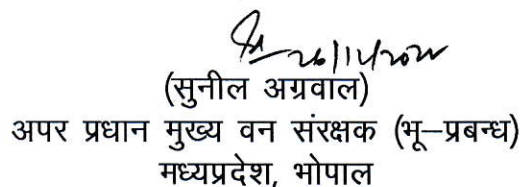 (सुनील अग्रवाल)
अपर प्रधान मुख्य वन संरक्षक (भू–प्रबन्ध)
मध्यप्रदेश, भोपाल